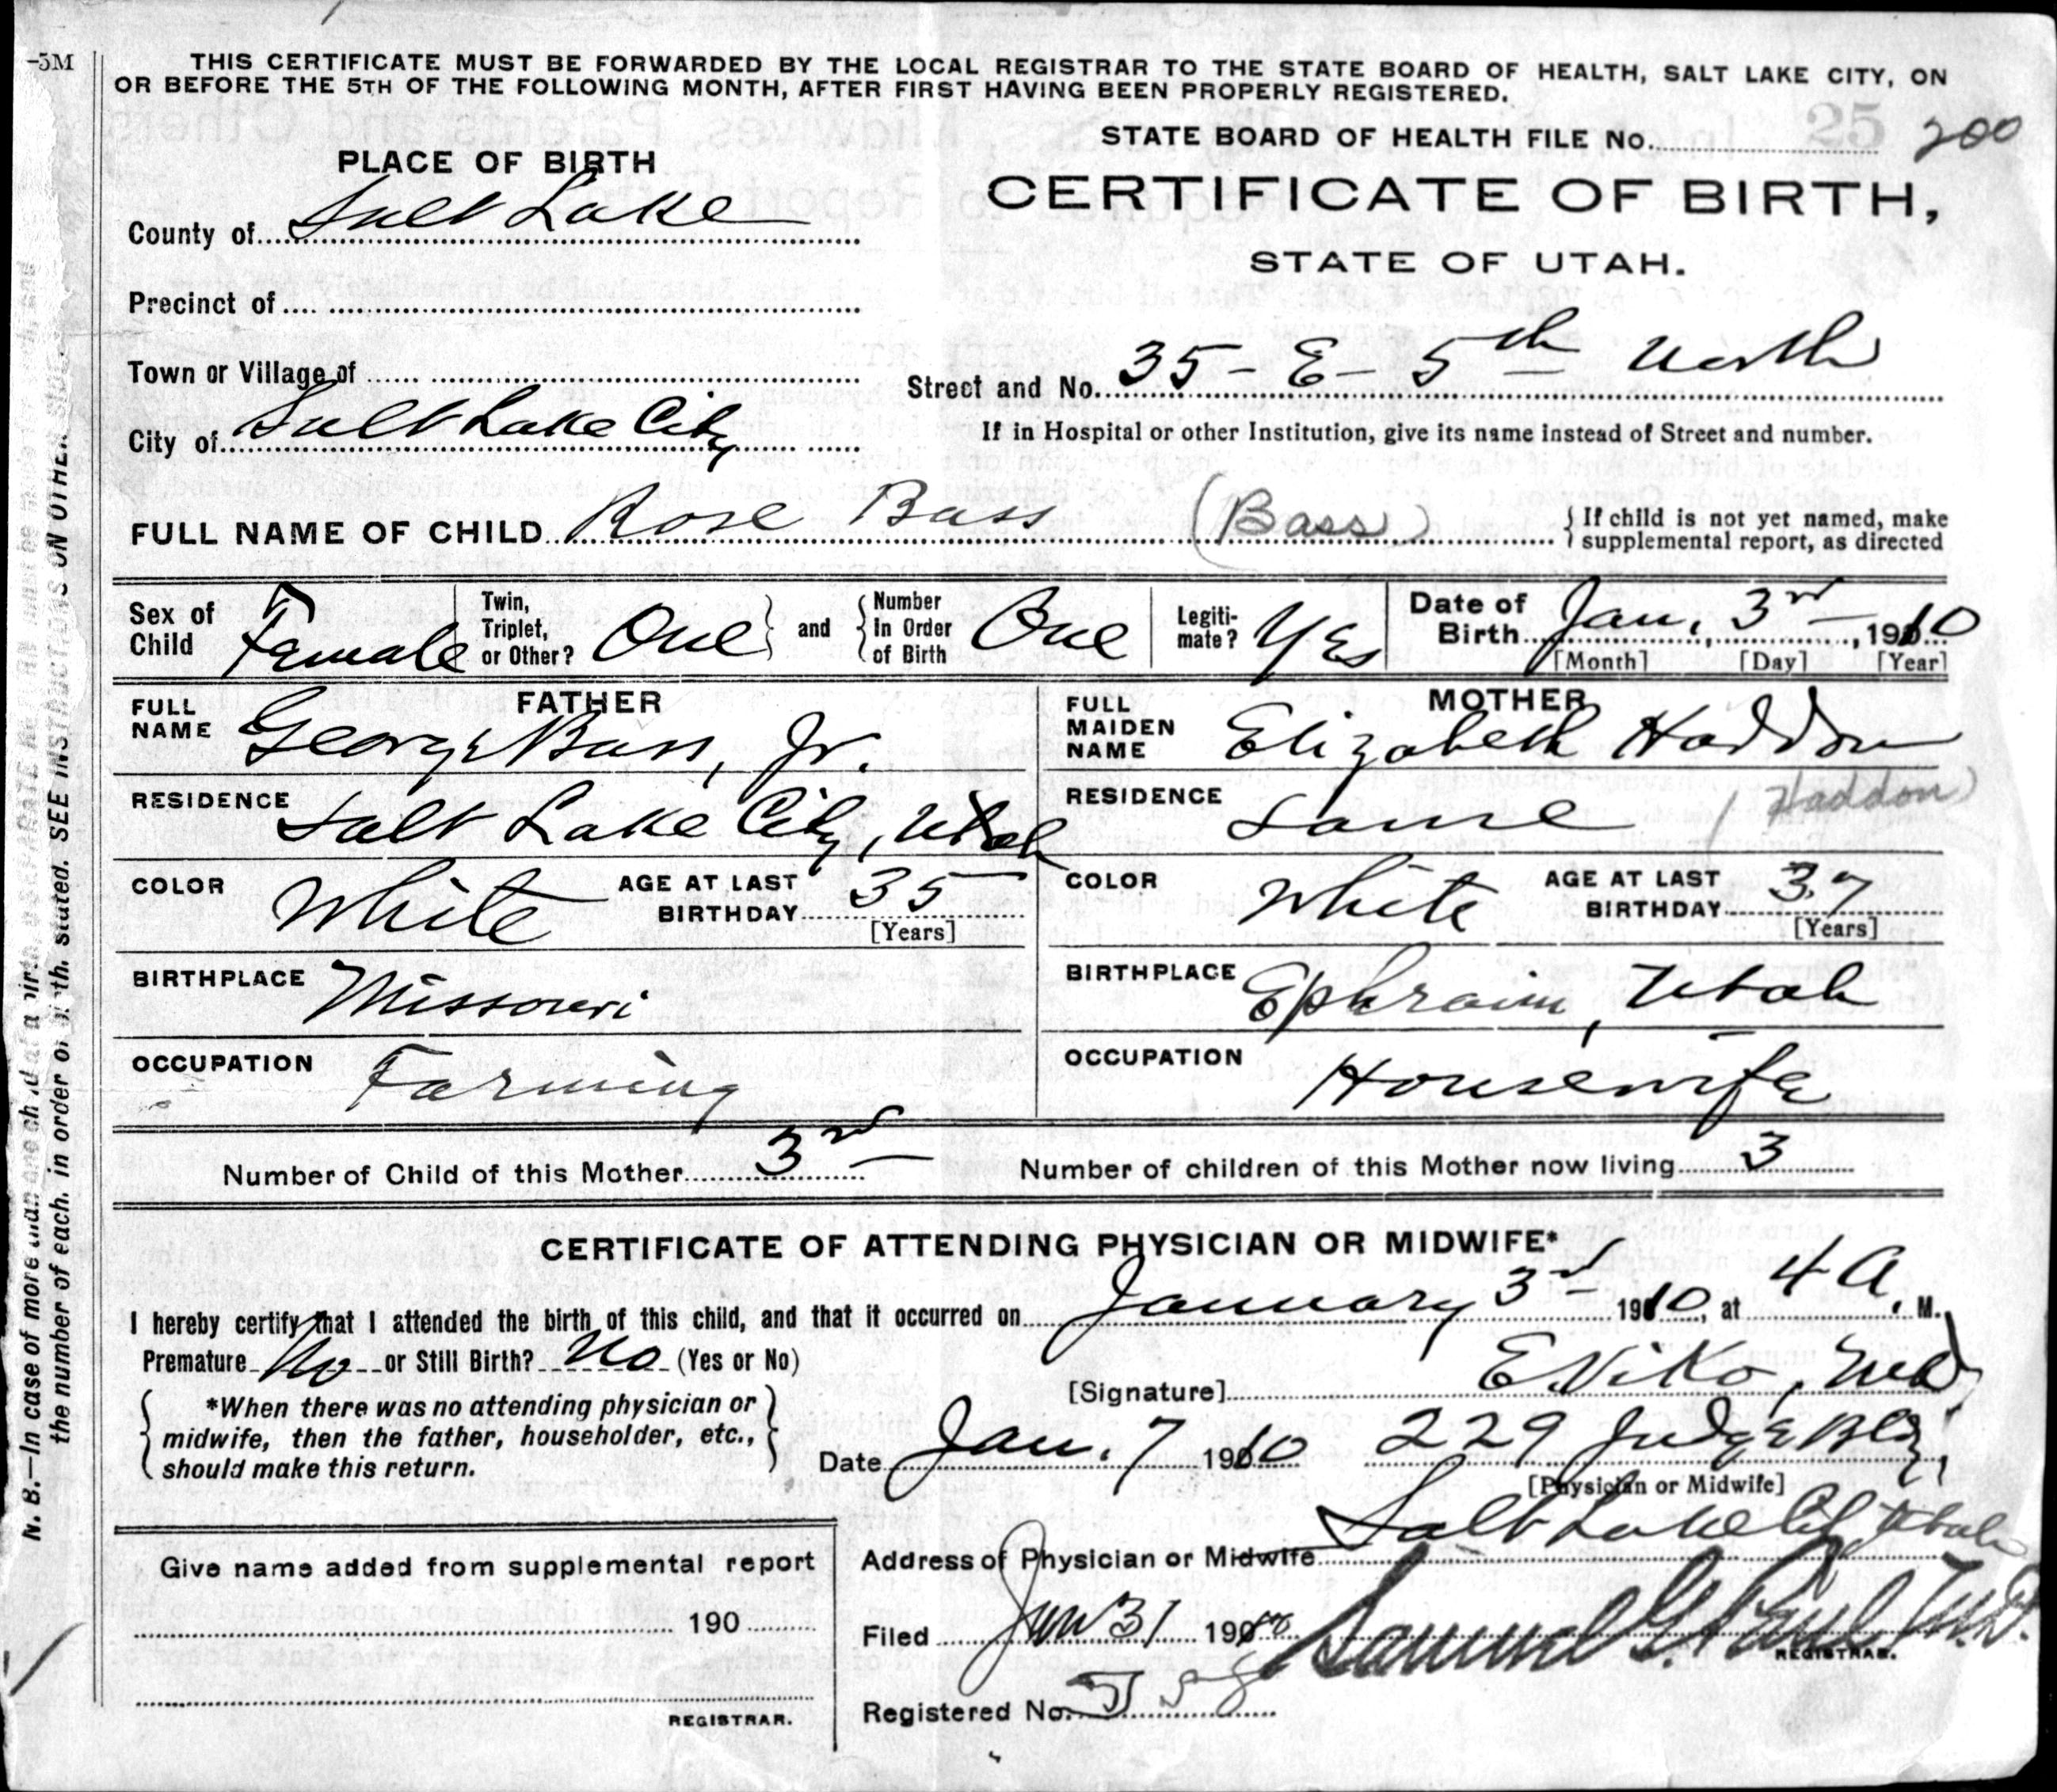 -5M
THIS CERTIFICATE MUST BE FORWARDED BY THE LOCAL REGISTRAR TO THE STATE BOARD OF HEALTH, SALT LAKE CITY, ON
OR BEFORE THE 5TH OF THE FOLLOWING MONTH, AFTER FIRST HAVING BEEN PROPERLY REGISTERED.
STATE BOARD OF HEALTH FILE No. 25 200
PLACE OF BIRTH
CERTIFICATE OF BIRTH,
STATE OF UTAH.
County of Salt Lake
Precinct of
Town or Village of
Street and No. 35 - E - 5th North
City of Salt Lake City
If in Hospital or other Institution, give its name instead of Street and number.
FULL NAME OF CHILD Rose Bass (Bass) { If child is not yet named, make
supplemental report, as directed
Sex of Child Female
Twin, Triplet, or Other? One } and { Number In Order of Birth One
Legiti-mate? Yes
Date of Birth Jan. 3rd, 1910
[Month] [Day] [Year]
FATHER
FULL NAME George Bass, Jr.
RESIDENCE Salt Lake City, Utah
COLOR White AGE AT LAST BIRTHDAY 35
[Years]
BIRTHPLACE Missouri
OCCUPATION Farming
MOTHER
FULL MAIDEN NAME Elizabeth Haddon
RESIDENCE Same (Haddon)
COLOR White AGE AT LAST BIRTHDAY 37
[Years]
BIRTHPLACE Ephraim, Utah
OCCUPATION Housewife
Number of Child of this Mother 3rd Number of children of this Mother now living 3
CERTIFICATE OF ATTENDING PHYSICIAN OR MIDWIFE*
I hereby certify that I attended the birth of this child, and that it occurred on January 3rd 1910, at 4 A. M.
Premature No or Still Birth? No (Yes or No)
[Signature] E Viko, MD
{ *When there was no attending physician or
midwife, then the father, householder, etc., }
should make this return.
Date Jan. 7 1910 229 Judge Bldg.
[Physician or Midwife]
Address of Physician or Midwife Salt Lake City Utah
Give name added from supplemental report
190
REGISTRAR.
Filed Jan 31 1910 Samuel G. Paul M.D.
REGISTRAR.
Registered No.
N. B.—In case of more than one child at a birth, a SEPARATE RETURN must be made for each, and
the number of each, in order of birth, stated. SEE INSTRUCTIONS ON OTHER SIDE.